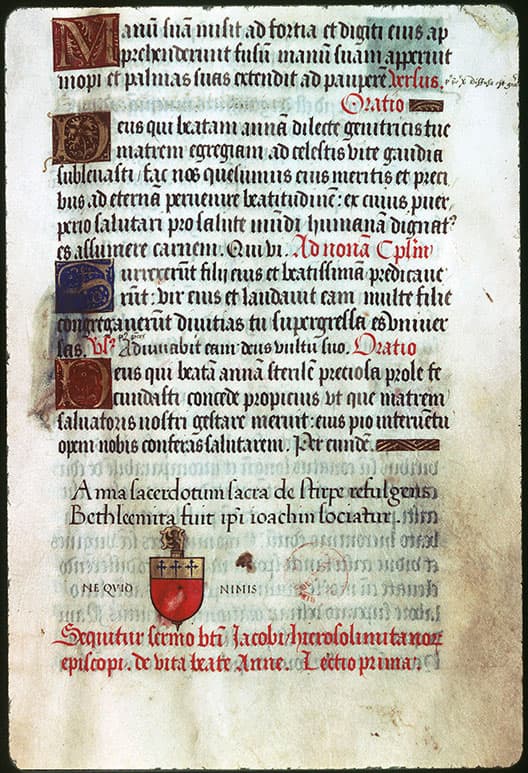 Manu͂ sua͂ misit ad fortia et digiti eius ap
prehenderunt fusu͂ manu͂ suam apperuit
inopi et palmas suas extendit ad paupere͂ Versus.
Oratio
Deus qui beatam anna͂ dilecte genitricis tue
matrem egregiam ad celestis vite gaudia
sublevasti / fac nos quesumus eius meritis et preci
bus ad eterna͂ pervenire beatitudine͂: ex cuius puer
perio salutari pro salute mu͂di humana͂ dignat᾽
es assumere carnem. Qui vi. Ad nona͂ Cplm͂
Surrexeru͂t filij eius et beatissima͂ predicaue
ru͂t: vir eius et laudauit eam multe filie
congregaueru͂t diuitias tu supergressa es vniuer
sas. Vs. Adiuuabit eam deus vultu͂ suo. Oratio
Deus qui beata͂ anna͂ sterile͂ preciosa prole fe
cundasti: concede propicius vt que matrem
saluatoris nostri gestare meruit: eius pio interue͂tu
opem nobis conferas salutarem. Per eunde͂.
Anna sacerdotum sacra de stirpe refulgens
Bethleemita fuit ip͂i ioachin sociatur.
NE QVID NIMIS
Sequitur sermo bt͂i Jacobi hierosolimitanor͂
episcopi. de vita beate Anne. Lectio prima.